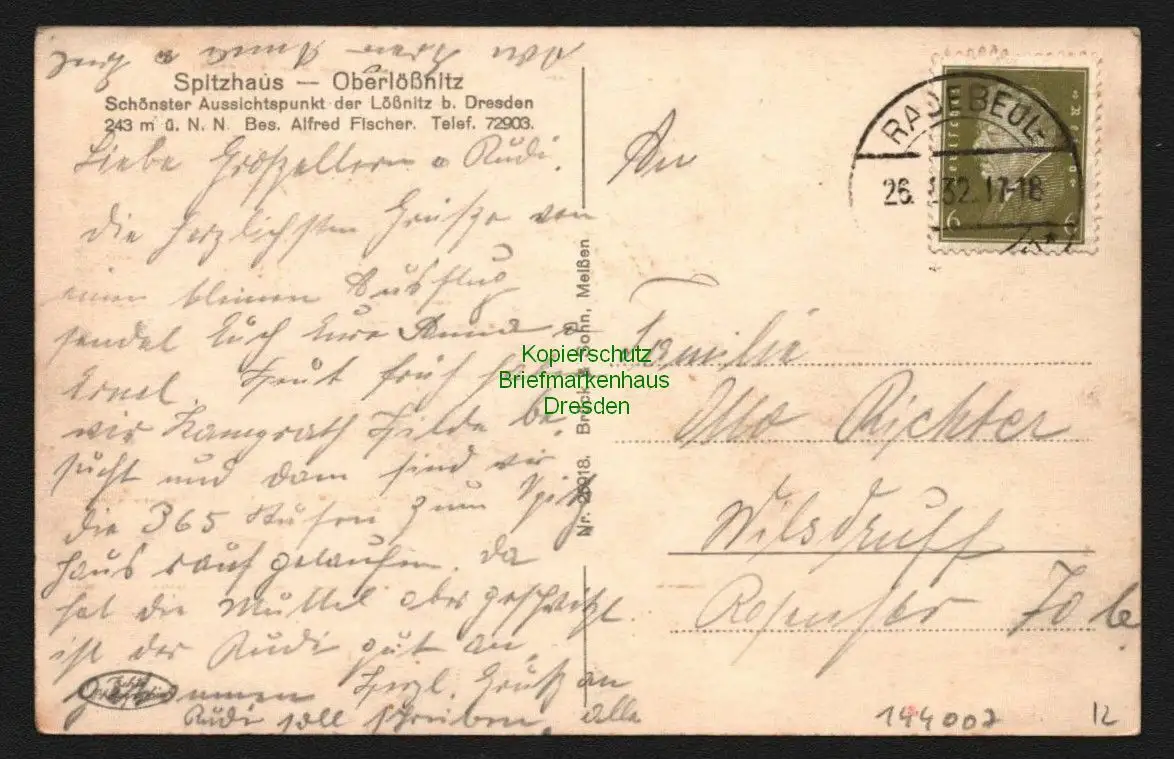 Spitzhaus — Oberlößnitz
Schönster Aussichtspunkt der Lößnitz b. Dresden
243 m ü. N. N. Bes. Alfred Fischer. Telef. 72903.
Liebe Großeltern u Rudi.
die herzlichsten Grüsze von
einen kleinen Ausflug
sendet Euch Eure
Heut früh haben
wir Hilde be-
sucht und dann sind wir
die 365 Stufen zum Spitz
haus rauf gelaufen. da
hat die Muttel aber geschwitzt.
ist der Rudi gut an
Herzl. Gruß an
Rudi soll schreiben, alle
Nr. 26918. Brück & Sohn, Meißen
RADEBEUL
26. 32. 17-18
6 6
An
Familie
Otto Richter
Wilsdruff
144002
12
Kopierschutz
Briefmarkenhaus
Dresden